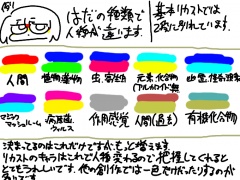 例)
はだの種類で
人格が違います。
基本リカストでは
2段に別れています。
人間
植物、動物
虫、寄生虫
元素、化合物
(アルカロイド類)
幽霊、怪奇現象
マジック
マッシュルーム
病原菌、
ウィルス
作用、感覚
人間(過去)
有機化合物
決まってるのはこれだけですが、もっと増えます
リカストのキャラはこれで人格変わるので把握してくれると
とてもうれしいです。他の創作では一色でぬったりするのが
多いです